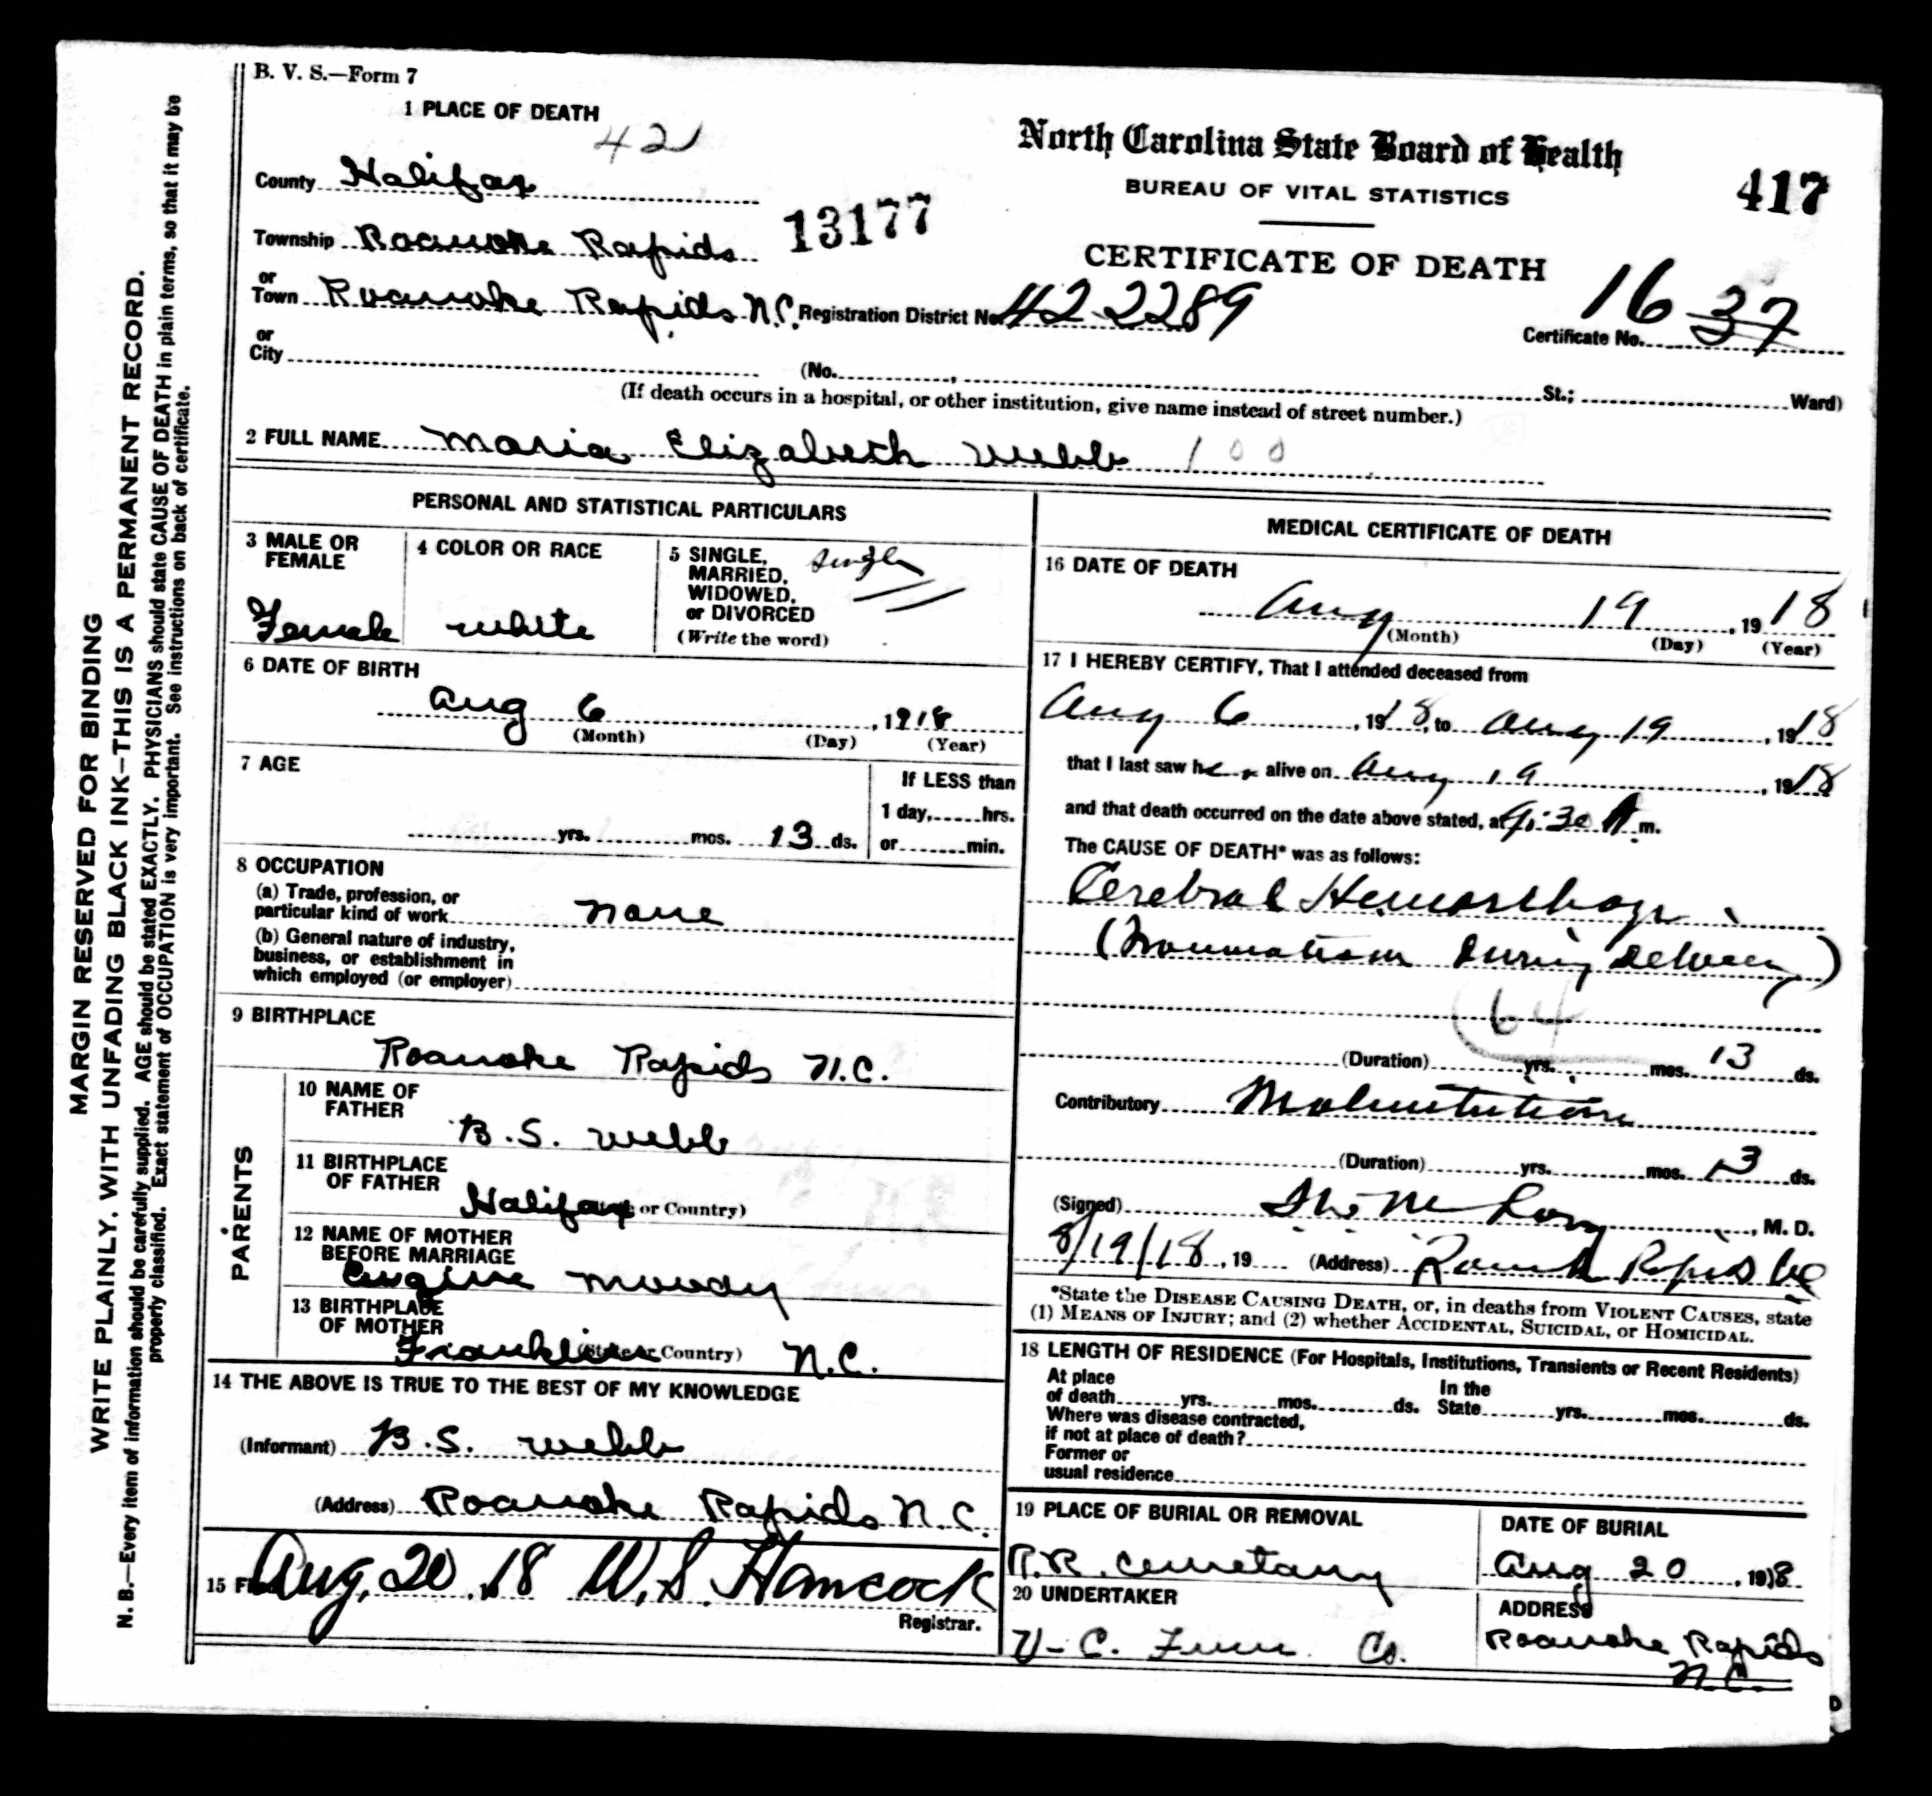 B. V. S.—Form 7
1 PLACE OF DEATH
42
County Halifax
Township Roanoke Rapids
13177
or
Town Roanoke Rapids N.C.
or
City
North Carolina State Board of Health
BUREAU OF VITAL STATISTICS
417
CERTIFICATE OF DEATH
Registration District No. 42-2289
16
Certificate No. 37
(No. , St.; Ward)
(If death occurs in a hospital, or other institution, give name instead of street number.)
2 FULL NAME Maria Elizabeth Webb 100
PERSONAL AND STATISTICAL PARTICULARS
3 MALE OR
FEMALE
Female
4 COLOR OR RACE
White
5 SINGLE,
MARRIED,
WIDOWED,
or DIVORCED
(Write the word)
Single
6 DATE OF BIRTH
Aug 6, 1918
(Month) (Day) (Year)
7 AGE
yrs. mos. 13 ds.
If LESS than
1 day, hrs.
or min.
8 OCCUPATION
(a) Trade, profession, or
particular kind of work none
(b) General nature of industry,
business, or establishment in
which employed (or employer)
9 BIRTHPLACE
Roanoke Rapids N.C.
PARENTS
10 NAME OF
FATHER
B.S. Webb
11 BIRTHPLACE
OF FATHER
Halifax or Country)
12 NAME OF MOTHER
BEFORE MARRIAGE
Eugine Moody
13 BIRTHPLACE
OF MOTHER
Franklin (State or Country) N.C.
14 THE ABOVE IS TRUE TO THE BEST OF MY KNOWLEDGE
(Informant) B.S. Webb
(Address) Roanoke Rapids N.C.
15 Filed Aug. 20, 18 W. S. Hancock
Registrar.
MEDICAL CERTIFICATE OF DEATH
16 DATE OF DEATH
Aug 19, 1918
(Month) (Day) (Year)
17 I HEREBY CERTIFY, That I attended deceased from
Aug 6, 1918, to Aug 19, 1918
that I last saw her alive on Aug 19, 1918
and that death occurred on the date above stated, at 9:30 A m.
The CAUSE OF DEATH* was as follows:
Cerebral Hemorrhage
(Traumatism During Delivery)
64
(Duration) yrs. mos. 13 ds.
Contributory Malnutrition
(Duration) yrs. mos. 13 ds.
(Signed) M. D.
8/19/18, 19 (Address) Rapids
*State the DISEASE CAUSING DEATH, or, in deaths from VIOLENT CAUSES, state
(1) MEANS OF INJURY; and (2) whether ACCIDENTAL, SUICIDAL, or HOMICIDAL.
18 LENGTH OF RESIDENCE (For Hospitals, Institutions, Transients or Recent Residents)
At place
of death yrs. mos. ds.
In the
State yrs. mos. ds.
Where was disease contracted,
if not at place of death?
Former or
usual residence
19 PLACE OF BURIAL OR REMOVAL
R.R. Cemetary
DATE OF BURIAL
Aug 20, 1918
20 UNDERTAKER
Co.
ADDRESS
Roanoke Rapids
N.C.
MARGIN RESERVED FOR BINDING
WRITE PLAINLY, WITH UNFADING BLACK INK—THIS IS A PERMANENT RECORD.
N. B.—Every item of information should be carefully supplied. AGE should be stated EXACTLY. PHYSICIANS should state CAUSE OF DEATH in plain terms, so that it may be
properly classified. Exact statement of OCCUPATION is very important. See instructions on back of certificate.